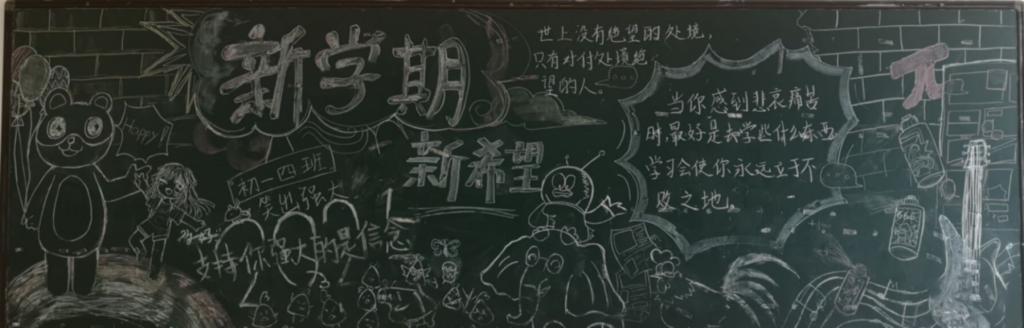 新学期
新希望
世上没有绝望的处境,
只有对付处境绝
望的人。
当你感到悲哀痛苦
时,最好是去学些什么东西
学习会使你永远立于不
败之地。
Happy!
初二四班
强大
支持你强大的是信念
π